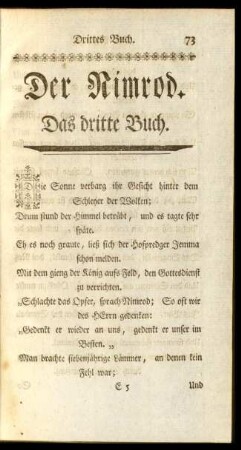 Drittes Buch. 73
Der Nimrod.
Das dritte Buch.
Die Sonne verbarg ihr Gesicht hinter dem
Schleyer der Wolken;
Drum stund der Himmel betrübt, und es tagte sehr
späte.
Eh es noch graute, ließ sich der Hofprediger Jemma
schon melden.
Mit dem gieng der König aufs Feld, den Gottesdienst
zu verrichten.
„Schlachte das Opfer, sprach Nimrod; So oft wir
des HErrn gedenken:
„Gedenkt er wieder an uns, gedenkt er unser im
Besten. „
Man brachte siebenjährige Lämmer, an denen kein
Fehl war;
E 5 Und